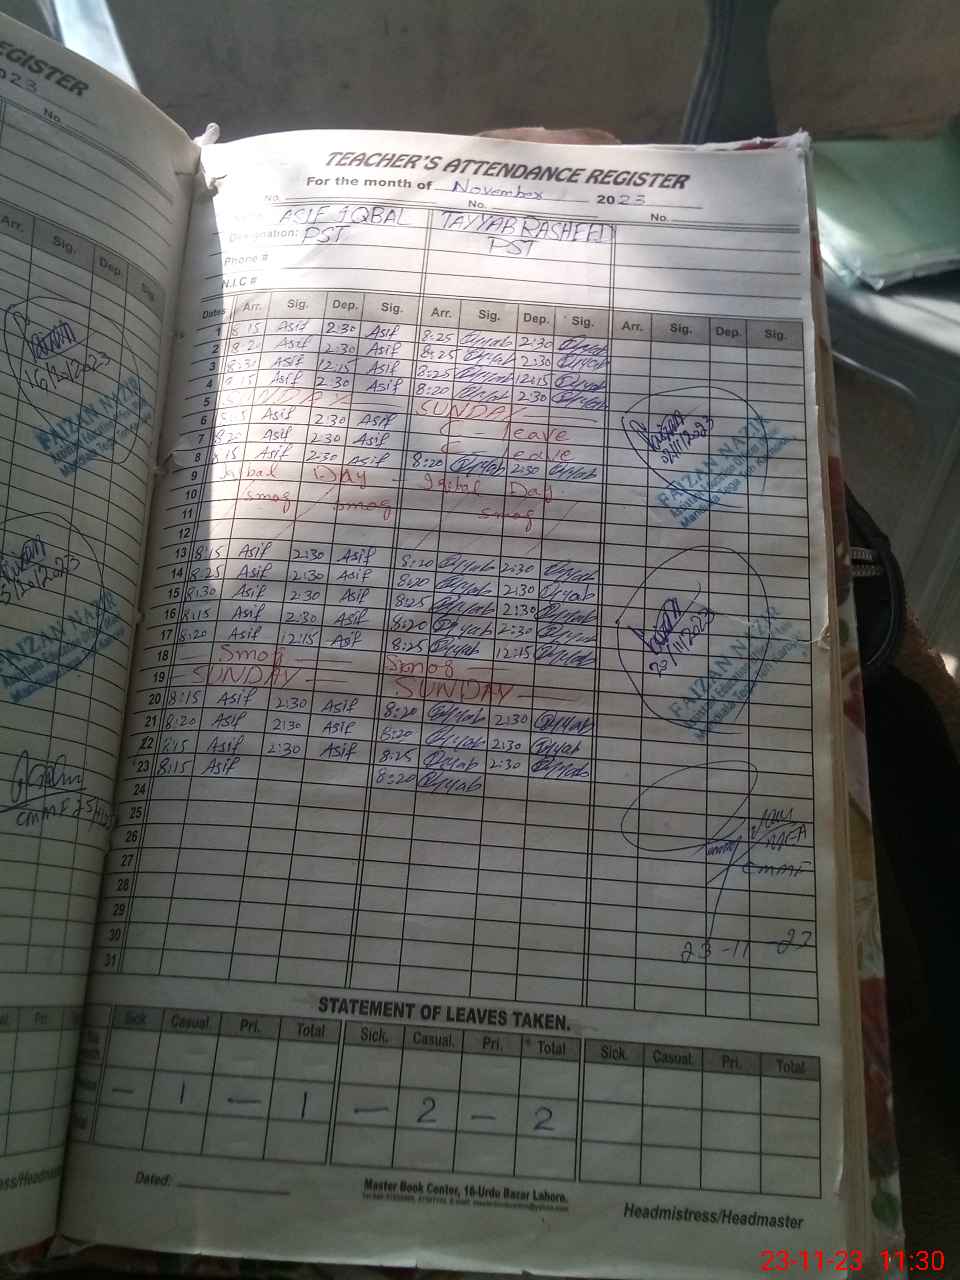 REGISTER
2023
No.
Arr. Sig. Dep. Sig.
16.12.2023
FAIZAN NAZIR
FAIZAN NAZIR
TEACHER'S ATTENDANCE REGISTER
For the month of November 2023
No. No. No.
ASIF IQBAL TAYYAB RASHEED
Designation: PST PST
Phone #
N.I.C #
Dates Arr. Sig. Dep. Sig. Arr. Sig. Dep. Sig. Arr. Sig. Dep. Sig.
1 8:15 Asif 2:30 Asif 8:25 Tayyab 2:30 Tayyab
2 8:20 Asif 2:30 Asif 8:25 Tayyab 2:30 Tayyab
3 8:30 Asif 12:15 Asif 8:25 Tayyab 12:15 Tayyab
4 8:15 Asif 2:30 Asif 8:20 Tayyab 2:30 Tayyab
5 SUNDAY SUNDAY
6 Asif 2:30 Asif C leave
7 8:20 Asif 2:30 Asif C leave
8 8:15 Asif 2:30 Asif 8:20 Tayyab 2:30 Tayyab
9 Iqbal Day Iqbal Day
10 smog smog
11 smog
12
13 8:15 Asif 2:30 Asif 8:20 Tayyab 2:30 Tayyab
14 8:25 Asif 2:30 Asif 8:20 Tayyab 2:30 Tayyab
15 8:30 Asif 2:30 Asif 8:25 Tayyab 2:30 Tayyab
16 8:15 Asif 2:30 Asif 8:20 Tayyab 2:30 Tayyab
17 8:20 Asif 12:15 Asif 8:25 Tayyab 12:15 Tayyab
18 Smog Smog
19 SUNDAY SUNDAY
20 8:15 Asif 2:30 Asif 8:20 Tayyab 2:30 Tayyab
21 8:20 Asif 2:30 Asif 8:20 Tayyab 2:30 Tayyab
22 8:15 Asif 2:30 Asif 8:25 Tayyab 2:30 Tayyab
23 8:15 Asif 8:20 Tayyab
24
25
26
27
28
29
30
31
FAIZAN NAZIR
FAIZAN NAZIR
MEA
CMMF
23-11-23
STATEMENT OF LEAVES TAKEN.
Sick Casual. Pri. Total Sick. Casual. Pri. Total Sick. Casual. Pri. Total
— 1 — 1 — 2 — 2
Dated:
Master Book Center, 16-Urdu Bazar Lahore.
Headmistress/Headmaster
23-11-23 11:30